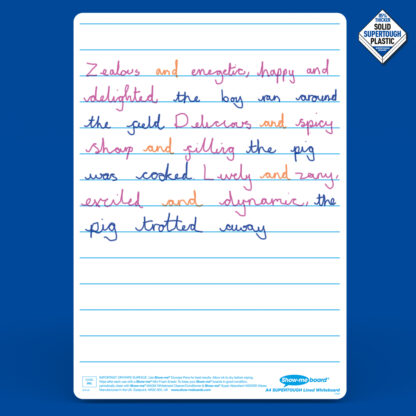 25% THICKER
SOLID
SUPERTOUGH
PLASTIC
Zealous and energetic, happy and
delighted the boy ran around
the field Delicious and spicy
sharp and filling the pig
was cooked Lively and zany,
excited and dynamic, the
pig trotted away
Show-me board
A4 SUPERTOUGH Lined Whiteboard